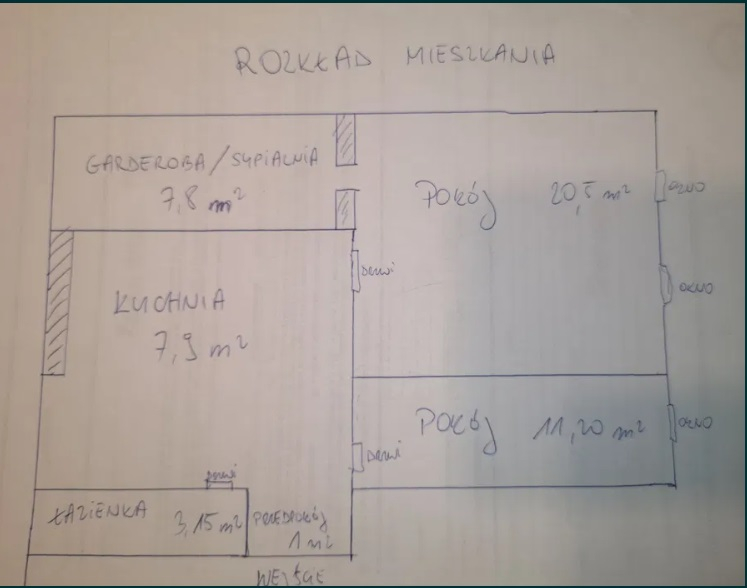 ROZKŁAD MIESZKANIA
GARDEROBA/SYPIALNIA
7,8 m²
POKÓJ 20,5 m²
OKNO
DRZWI
OKNO
KUCHNIA
7,9 m²
POKÓJ 11,20 m²
OKNO
DRZWI
DRZWI
ŁAZIENKA 3,15 m²
PRZEDPOKÓJ
1 m²
WEJŚCIE